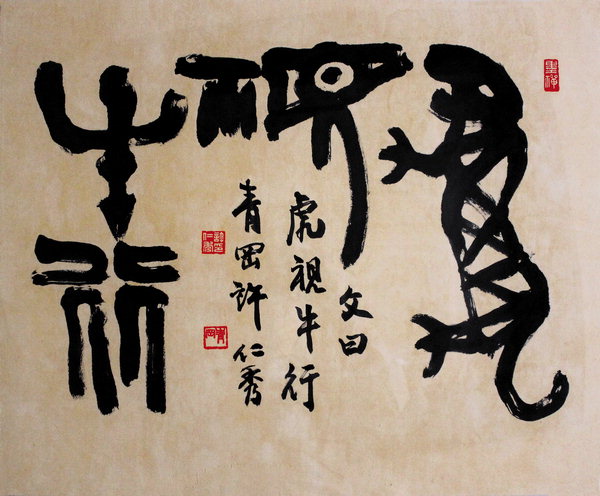 虎
視
牛行
文曰
虎視牛行
青岡許仁秀